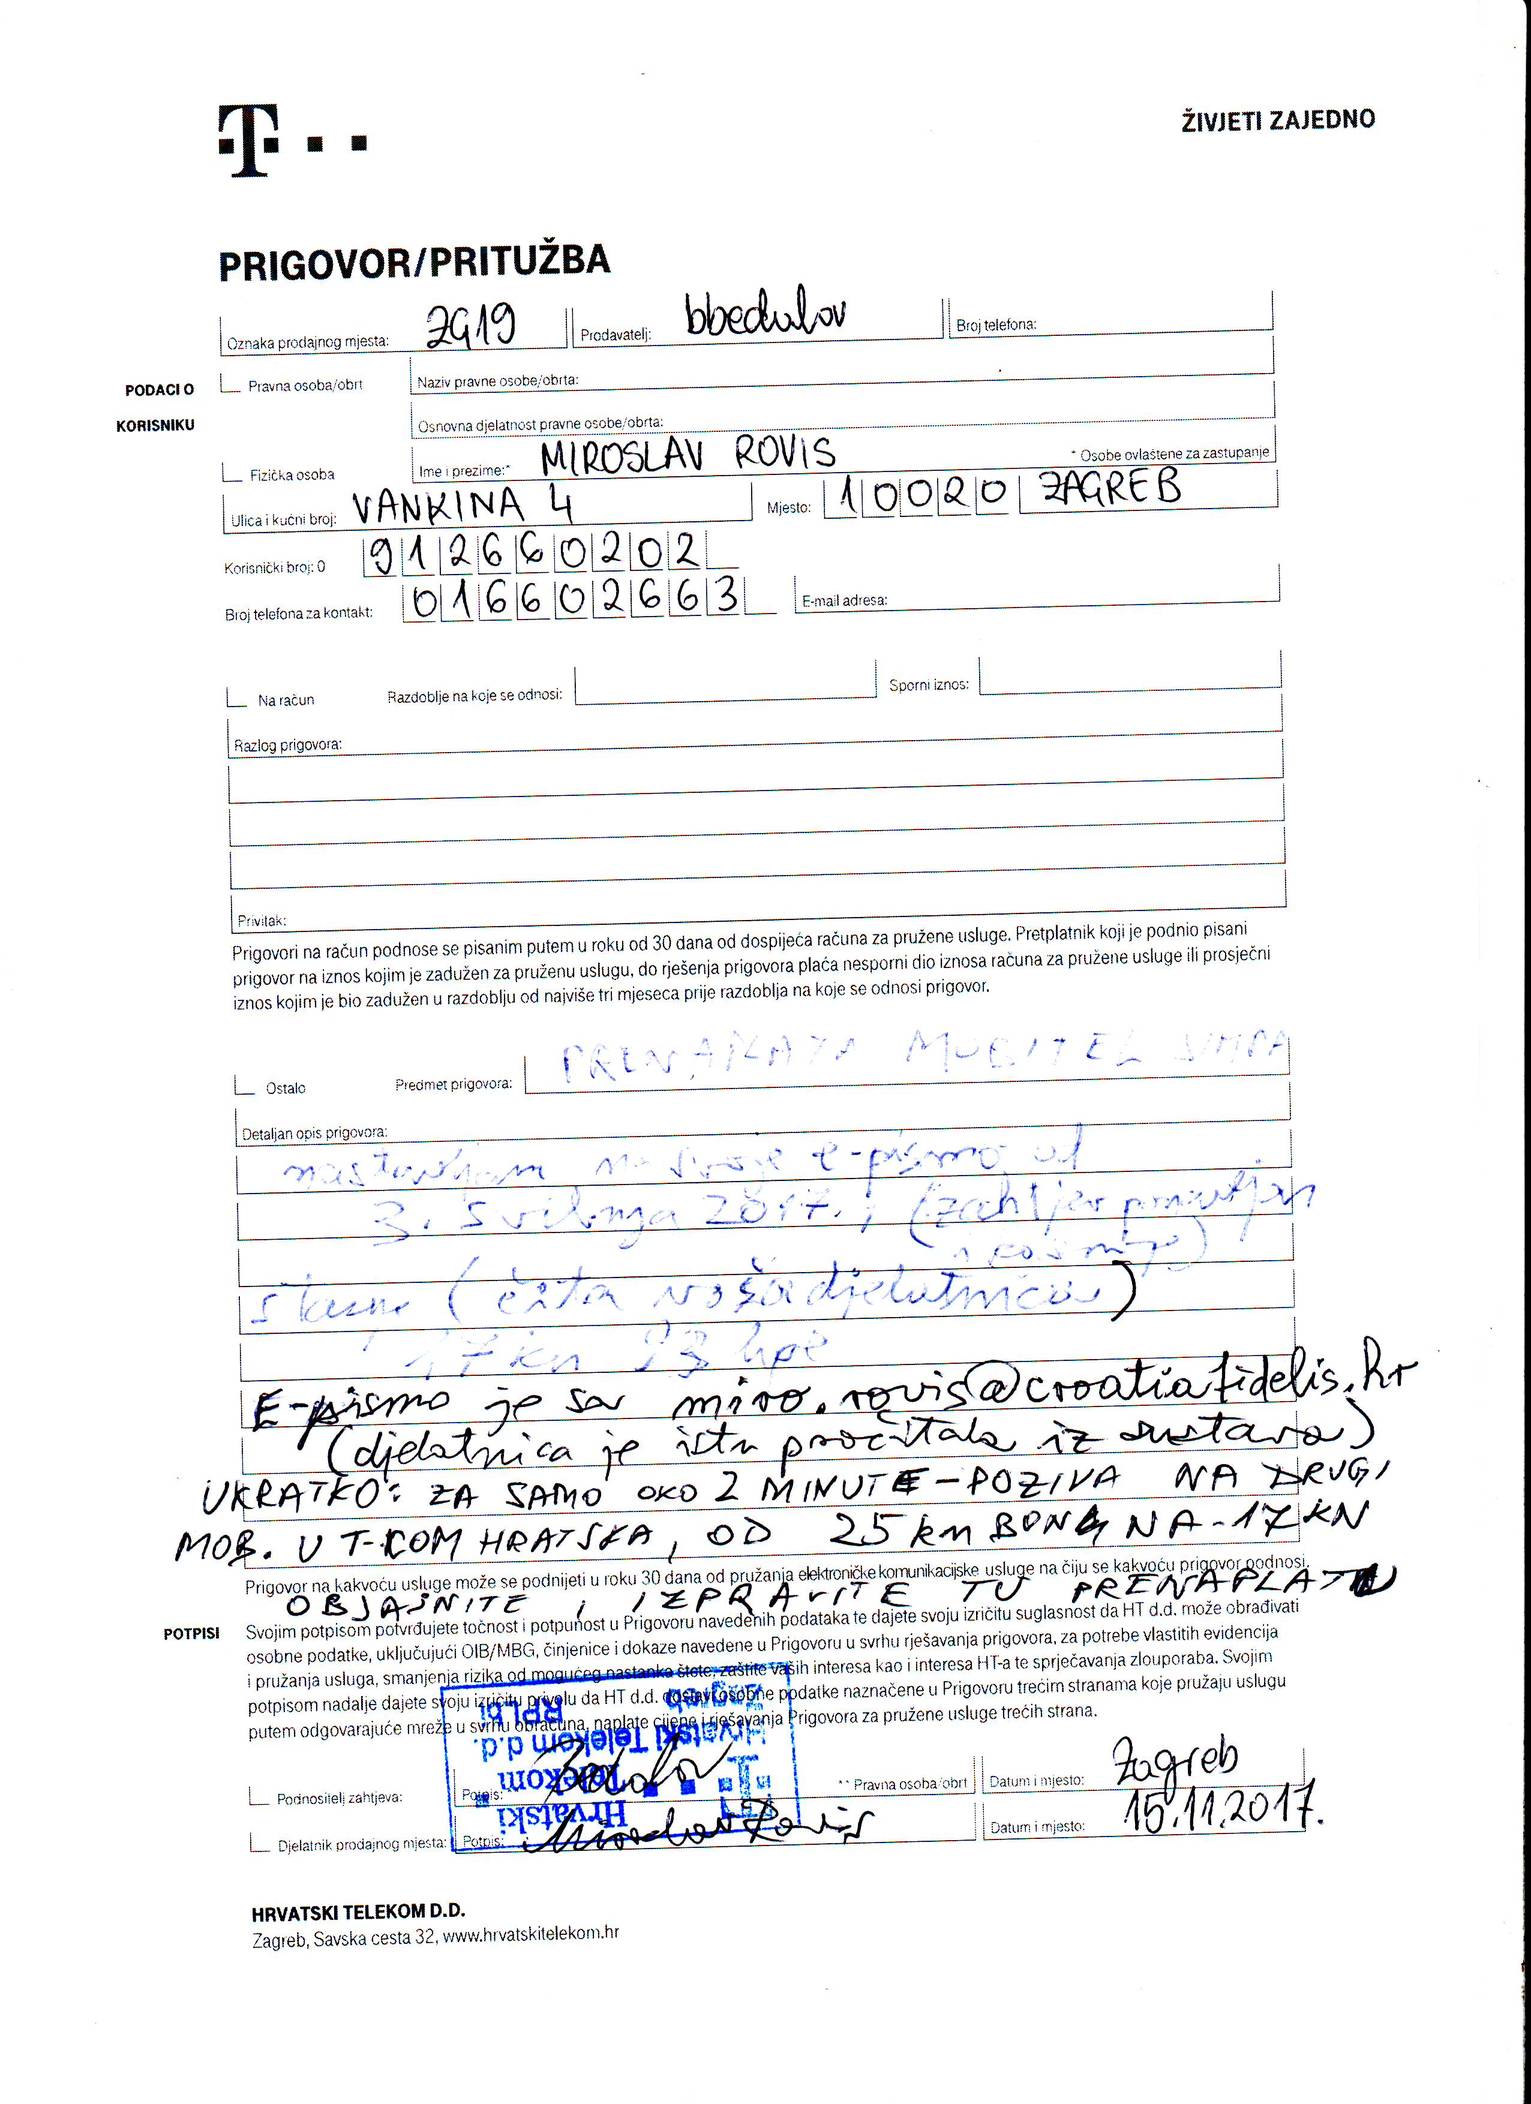 T
ŽIVJETI ZAJEDNO
PRIGOVOR/PRITUŽBA
Oznaka prodajnog mjesta: ZG19 Prodavatelj: bbedalov Broj telefona:
PODACI O KORISNIKU
Pravna osoba/obrt Naziv pravne osobe/obrta:
Osnovna djelatnost pravne osobe/obrta:
Fizička osoba Ime i prezime:* MIROSLAV ROVIS * Osobe ovlaštene za zastupanje
Ulica i kućni broj: VANKINA 4 Mjesto: 10020 ZAGREB
Korisnički broj: 0 912660202
Broj telefona za kontakt: 016602663 E-mail adresa:
Na račun Razdoblje na koje se odnosi: Sporni iznos:
Razlog prigovora:
Privitak:
Prigovori na račun podnose se pisanim putem u roku od 30 dana od dospijeća računa za pružene usluge. Pretplatnik koji je podnio pisani
prigovor na iznos kojim je zadužen za pruženu uslugu, do rješenja prigovora plaća nesporni dio iznosa računa za pružene usluge ili prosječni
iznos kojim je bio zadužen u razdoblju od najviše tri mjeseca prije razdoblja na koje se odnosi prigovor.
Ostalo Predmet prigovora: PRENAPLATA MOBITEL SIMPA
Detaljan opis prigovora:
nastavljam na svoje e-pismo od
3. svibnja 2017., (zahtjev
(čita vaša djelatnica)
17 kn
E-pismo je sa miro.rovis@croatiafidelis.hr
(djelatnica je istu pročitala iz sustava)
UKRATKO: ZA SAMO OKO 2 MINUTE-POZIVA NA DRUGI
MOB. U T-COM HRATSKA, OD 25 kn BONA NA -17 KN
Prigovor na kakvoću usluge može se podnijeti u roku 30 dana od pružanja elektroničke komunikacijske usluge na čiju se kakvoću prigovor podnosi.
OBJASNITE I IZPRAVITE TU PRENAPLATU
POTPISI
Svojim potpisom potvrđujete točnost i potpunost u Prigovoru navedenih podataka te dajete svoju izričitu suglasnost da HT d.d. može obrađivati
osobne podatke, uključujući OIB/MBG, činjenice i dokaze navedene u Prigovoru u svrhu rješavanja prigovora, za potrebe vlastitih evidencija
i pružanja usluga, smanjenja rizika od mogućeg nastanka štete, zaštite vaših interesa kao i interesa HT-a te sprječavanja zlouporaba. Svojim
potpisom nadalje dajete svoju izričitu privolu da HT d.d. dostavi osobne podatke naznačene u Prigovoru trećim stranama koje pružaju uslugu
putem odgovarajuće mreže u svrhu obračuna, naplate cijene i rješavanja Prigovora za pružene usluge trećih strana.
Podnositelj zahtjeva: Potpis: ** Pravna osoba/obrt Datum i mjesto: Zagreb
Djelatnik prodajnog mjesta: Potpis: Miroslav Rovis Datum i mjesto: 15.11.2017.
Hrvatski
Telekom
Hrvatski Telekom d.d.
Zagreb
HRVATSKI TELEKOM D.D.
Zagreb, Savska cesta 32, www.hrvatskitelekom.hr